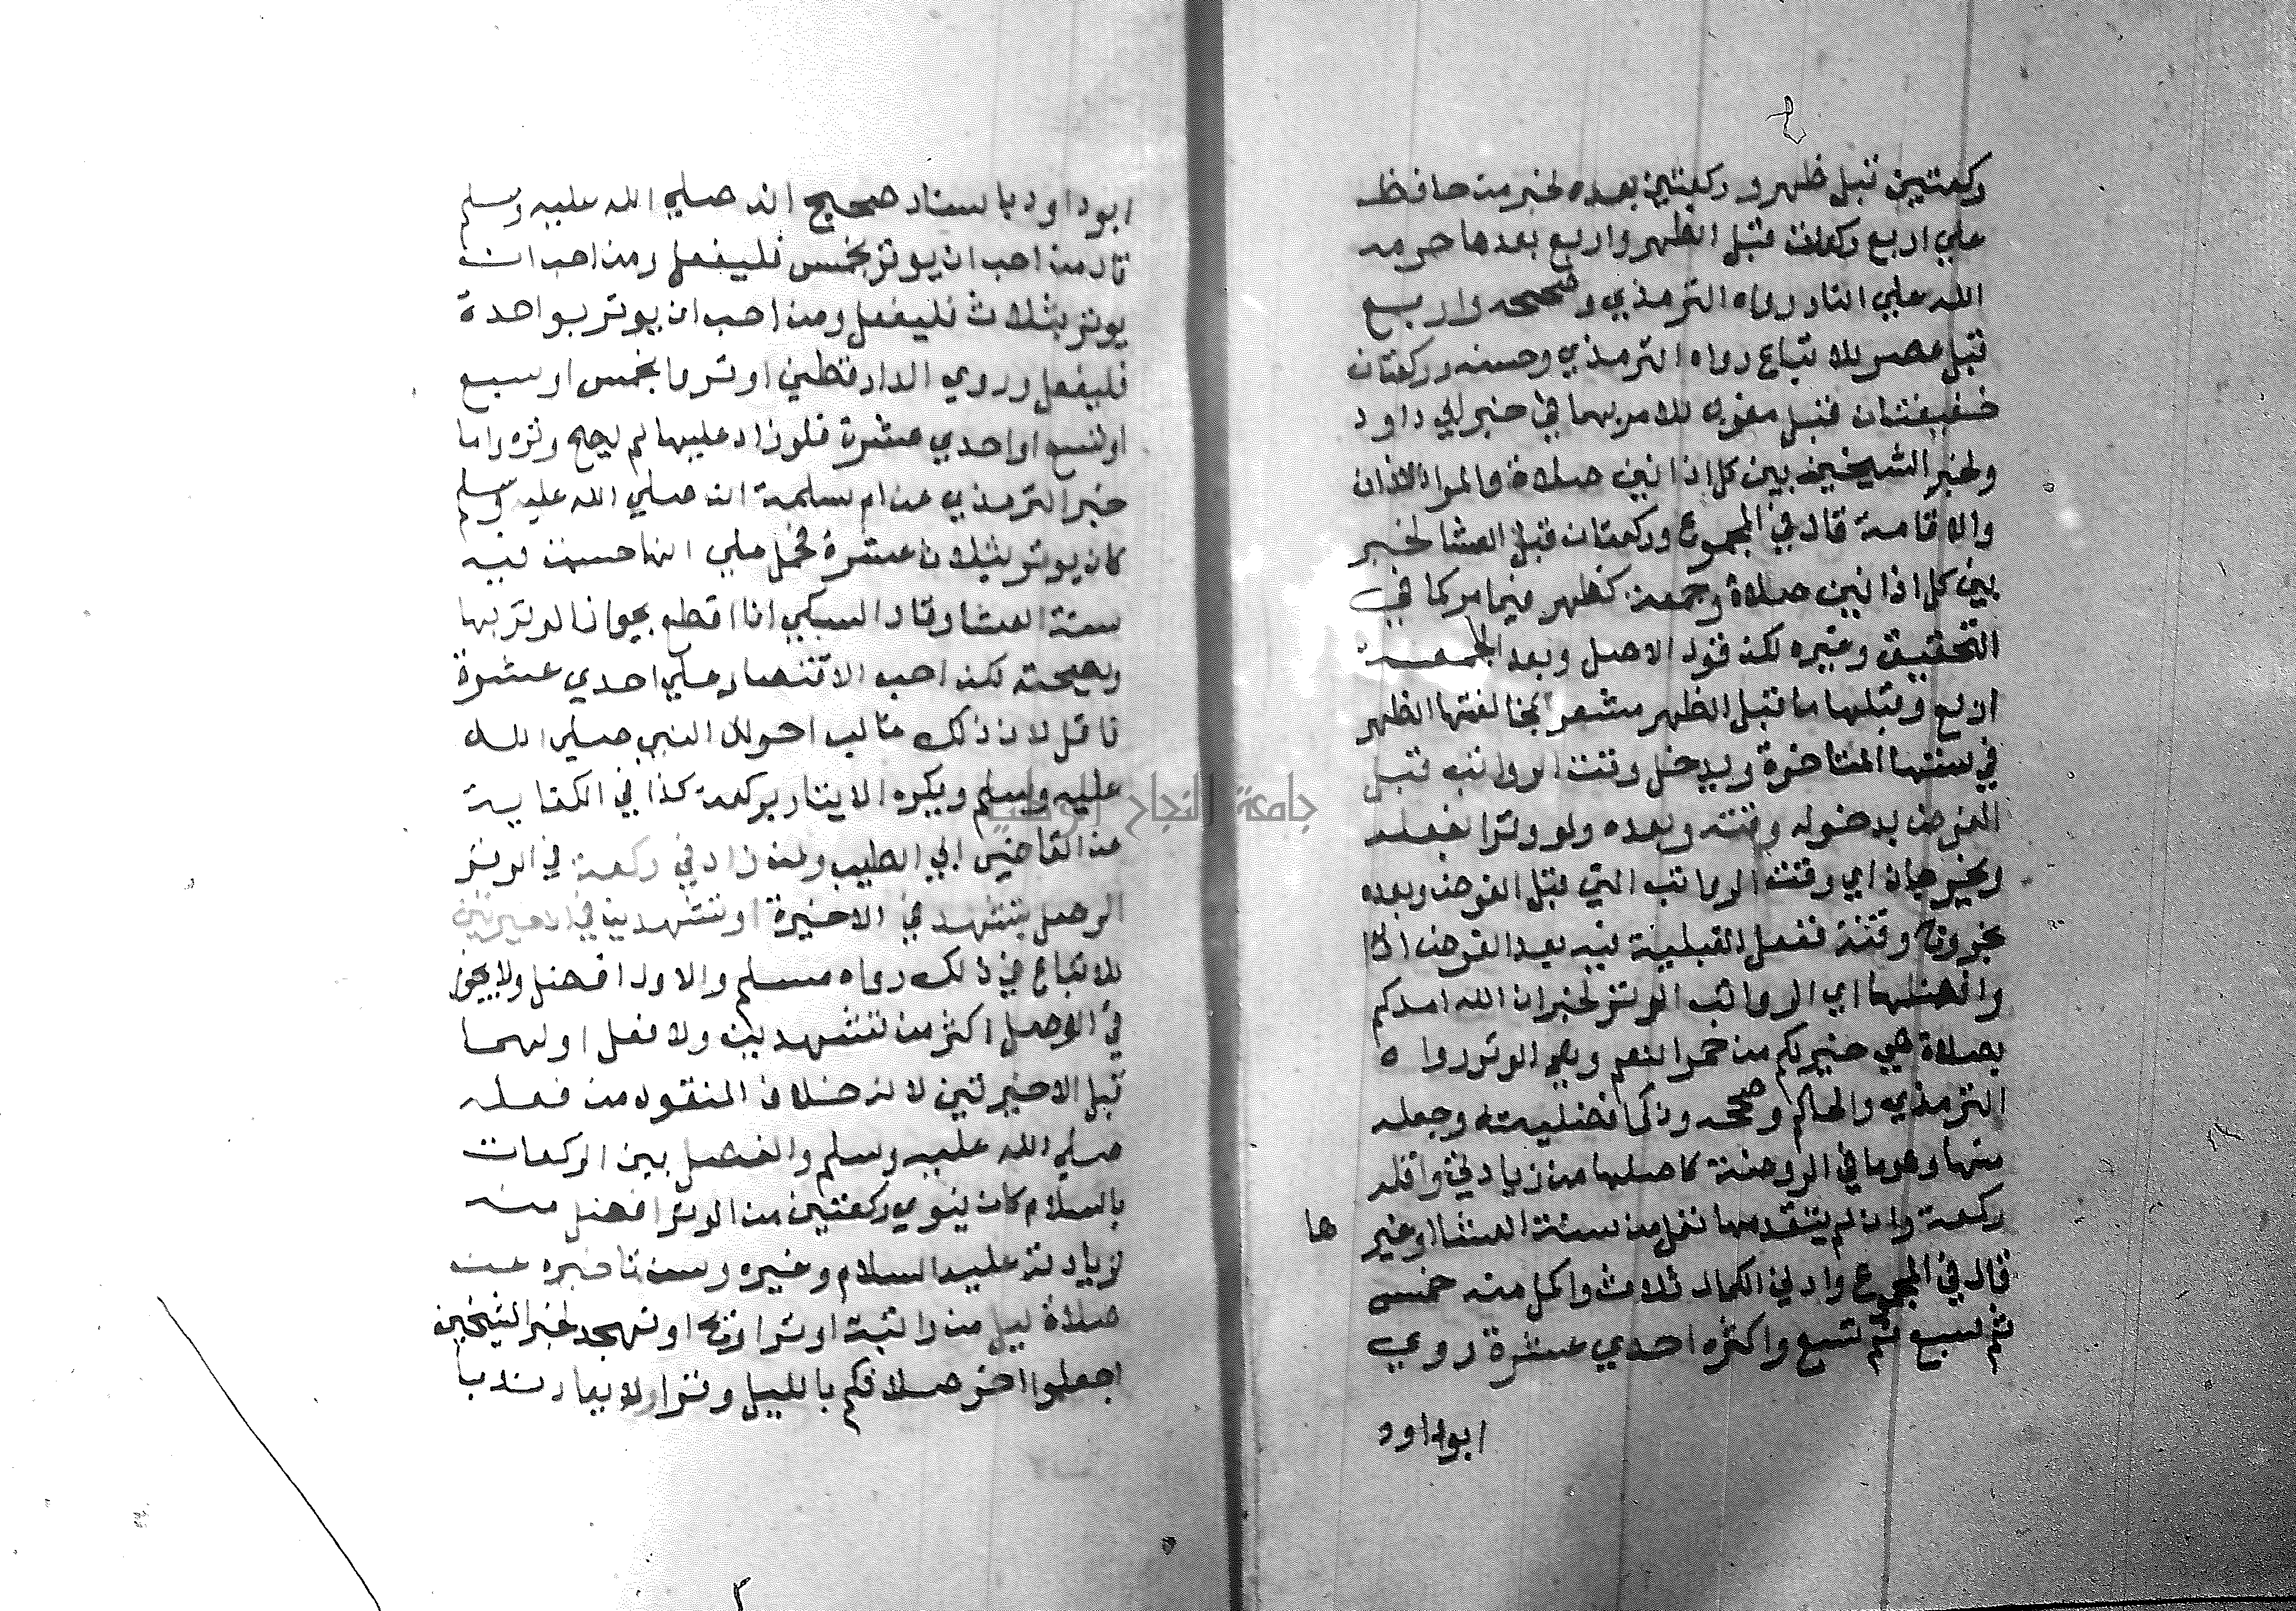 ركعتين قبل ظهر وركعتين بعده لخبر من حافظ
علي اربع ركعات قبل الظهر واربع بعدها حرمه
الله علي النار رواه الترمذي وصححه واربع
قبل عصر للاتباع رواه الترمذي وحسنه وركعتان
خفيفتان قبل مغرب للامر بهما في خبر ابي داود
ولخبر الشيخين بين كل اذانين صلاة والمراد الاذان
والاقامة قال في المجموع وركعتان قبل العشا لخبر
بين كل اذانين صلاة وجمعة كظهر فيما مر كما في
التحقيق وغيره لكن قول الاصل وبعد الجمعة
اربع وقبلها ما قبل الظهر مشعر بمخالفتها الظهر
في سنتها المتاخرة ويدخل وقت الرواتب قبل
الفرض بدخوله وقته وبعده ولو وترا بفعله
ويخرجان اي وقت الرواتب التي قبل الفرض وبعده
بخروج وقته ففعل القبلية فيه بعد الفرض ادا
وافضلها اي الرواتب الوتر لخبر ان الله امدكم
بصلاة هي خير لكم من حمر النعم وهي الوتر رواه
الترمذي والحاكم وصححه وذكر افضليته وجعله
منها وهو ما في الروضة كاصلها من زيادتي واقله
ركعة وان لم يتقدمها نفل من سنة العشا او غير
ها
قال في المجموع وادني الكمال ثلاث واكمل منه خمس
ثم سبع ثم تسع واكثره احدي عشرة روي
ابوداود
ابوداود باسناد صحيح انه صلي الله عليه وسلم
قال من احب ان يوتر بخمس فليفعل ومن احب ان
يوتر بثلاث فليفعل ومن احب ان يوتر بواحدة
فليفعل وروي الدارقطني اوتروا بخمس او سبع
او تسع او احدي عشرة فلو زاد عليها لم يصح وتره واما
خبر الترمذي عن ام سلمة انه صلي الله عليه وسلم
كان يوتر بثلاث عشرة فحمل علي انها حسبت فيه
سنة العشا وقال السبكي انا اقطع بجواز الوتر بها
وبصحته لكن احب الاقتصار علي احدي عشرة
فاقل لان ذلك غالب احوال النبي صلي الله
عليه وسلم ويكره الايتار بركعة كذا في الكفاية
عن القاضي ابي الطيب ولمن زاد في ركعة في الوتر
الوصل بتشهد في الاخيرة او تشهدين في الاخيرتين
للاتباع في ذلك رواه مسلم والاول افضل ولا يجوز
في الوصل اكثر من تشهدين ولا فعل اولهما
قبل الاخيرتين لانه خلاف المنقول من فعله
صلي الله عليه وسلم والفصل بين الركعات
بالسلام كان ينوي ركعتين من الوتر افضل منه
لزيادته عليه السلام وغيره وسن تاخيره عن
صلاة ليل من راتبة او تراويح او تهجد لخبر الشيخين
اجعلوا اخر صلاتكم بالليل وترا ولا يعاد ندبا
جامعة النجاح الوطنية